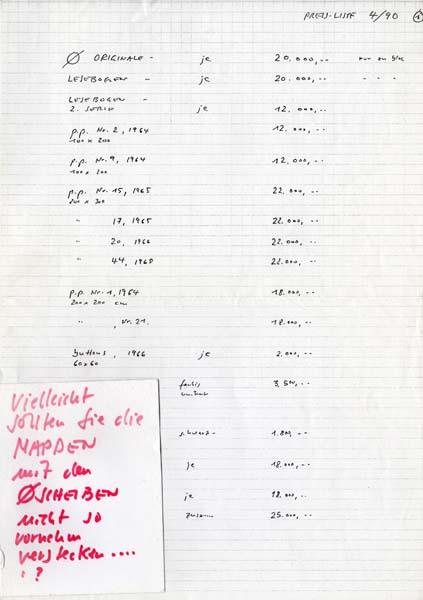 PREIS-LISTE 4/90 ①
Ø ORIGINALE - je 20.000,-- nur en bloc
LESEBOGEN - je 20.000,-- - - -
LESEBOGEN -
2. SERIE je 12.000,--
p.p. Nr. 2, 1964 12.000,--
100 x 200
p.p. Nr. 9, 1964 12.000,--
100 x 200
p.p. Nr. 15, 1965 22.000,--
200 x 300
" 17, 1965 22.000,--
" 20, 1966 22.000,--
" 44, 1968 22.000,--
p.p. Nr. 1, 1964 18.000,--
200 x 200 cm
" , Nr. 21. 18.000,--
buttons, 1966 je 2.000,--
60 x 60
farbig 3.500,--
schwarz - 1.800,--
je 18.000,--
je 18.000,--
zusam 25.000,--
Vielleicht
sollten Sie die
MAPPEN
mit den
ØSCHEIBEN
nicht so
vornehm
verstecken ....
. ?